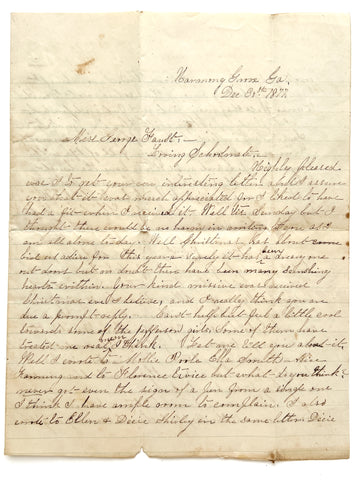 Harmony Grove Ga.
Dec 30th 1877.
Miss Jennie Faust, —
Loving Schoolmate, —
Highly pleased
was I to get your very interesting letter and I assure
you that it was much appreciated for I liked to have
had a fit when I received it. Well tis Sunday but I
thought there would be no harm in writing some as I
am all alone today. Well Christmas has about come
bid us adieu for this year. Surely it has been a dreary one
out doors but no doubt there have been many sunshiny
hearts within. Your kind missive was received
Christmas eve
and I really think you are
due a prompt reply. — Can't help but feel a little cool
towards some of the girls. Some of them have
treated me real mean I think. Let me tell you about it.
Well I wrote to Mollie Ella Smith — Alice
and to Florence but what do you think
never got even the sign of a line from a single one
I think I have ample room to complain. I also
wrote to Ellen & Dicie Shirley in the same letter. Dicie